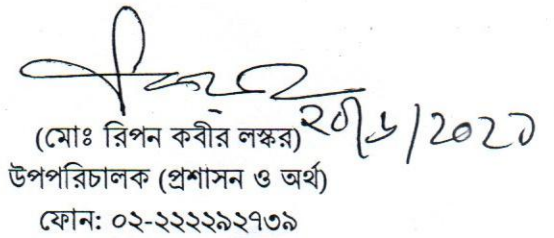 (মোঃ রিপন কবীর লস্কর)
উপপরিচালক (প্রশাসন ও অর্থ)
ফোন: ০২-২২২২৯২৭৩৯